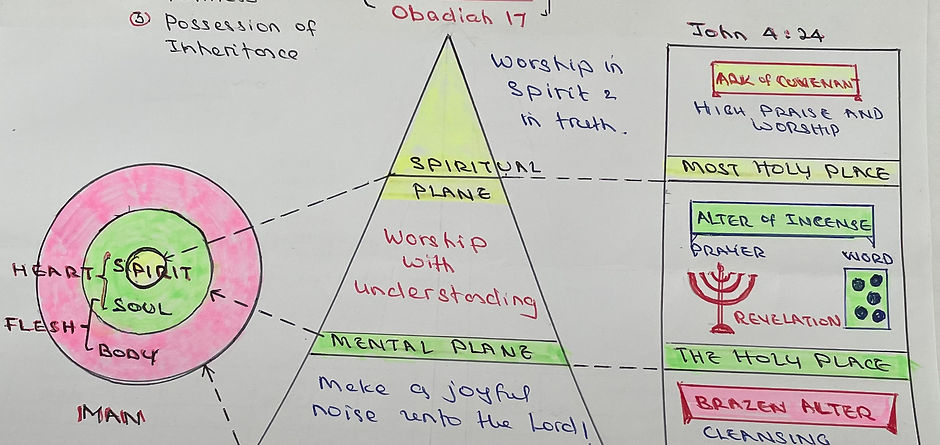 ③ Possession of
Inheritance
Obadiah 17
Worship in
Spirit &
in truth.
SPIRITUAL
PLANE
Worship
with
understanding
MENTAL PLANE
Make a joyful
noise unto the Lord!
HEART
SPIRIT
SOUL
FLESH
BODY
MAN
John 4:24
ARK of COVENANT
HIGH PRAISE AND
WORSHIP
MOST HOLY PLACE
ALTER of INCENSE
PRAYER
WORD
REVELATION
THE HOLY PLACE
BRAZEN ALTER
CLEANSING